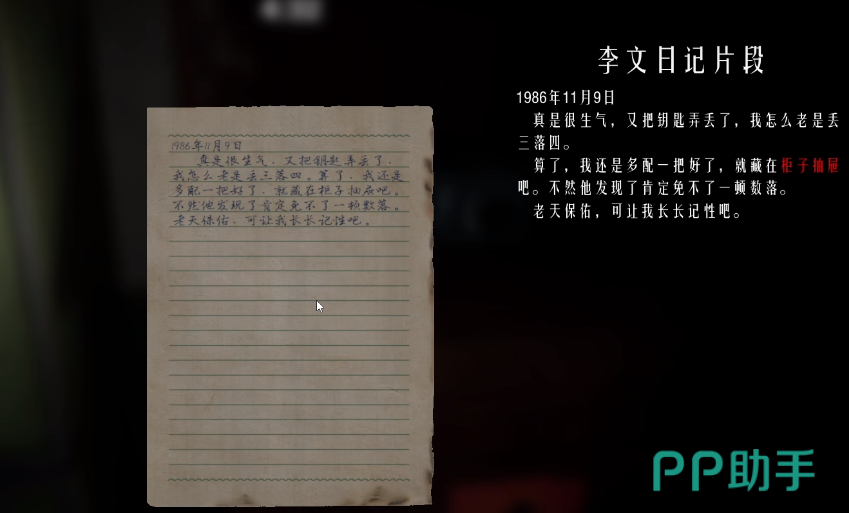 李文日记片段
1986年11月9日
真是很生气，又把钥匙弄丢了，我怎么老是丢
三落四。
算了，我还是多配一把好了，就藏在柜子抽屉
吧。不然他发现了肯定免不了一顿数落。
老天保佑，可让我长长记性吧。
1986年11月9日
真是很生气，又把钥匙弄丢了，
我怎么老是丢三落四。算了，我还是
多配一把好了，就藏在柜子抽屉吧。
不然他发现了肯定免不了一顿数落。
老天保佑，可让我长长记性吧。
PP助手